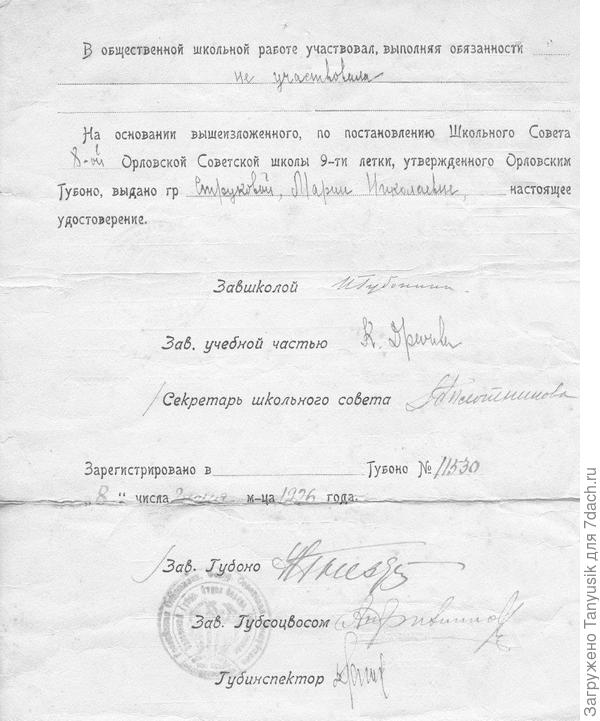 В общественной школьной работе участвовал, выполняя обязанности
не участвовала
На основании вышеизложенного, по постановлению Школьного Совета
8-ой Орловской Советской школы 9-ти летки, утвержденного Орловским
Губоно, выдано гр Струковой, Марии Николаевне, настоящее
удостоверение.
Завшколой
Зав. учебной частью К.
Секретарь школьного совета Плотникова
Зарегистрировано в Губоно № 11530
"8" числа м-ца 1926 года.
Зав. Губоно
Зав. Губсоцвосом
Губинспектор
Загружено Tanyusik для 7dach.ru